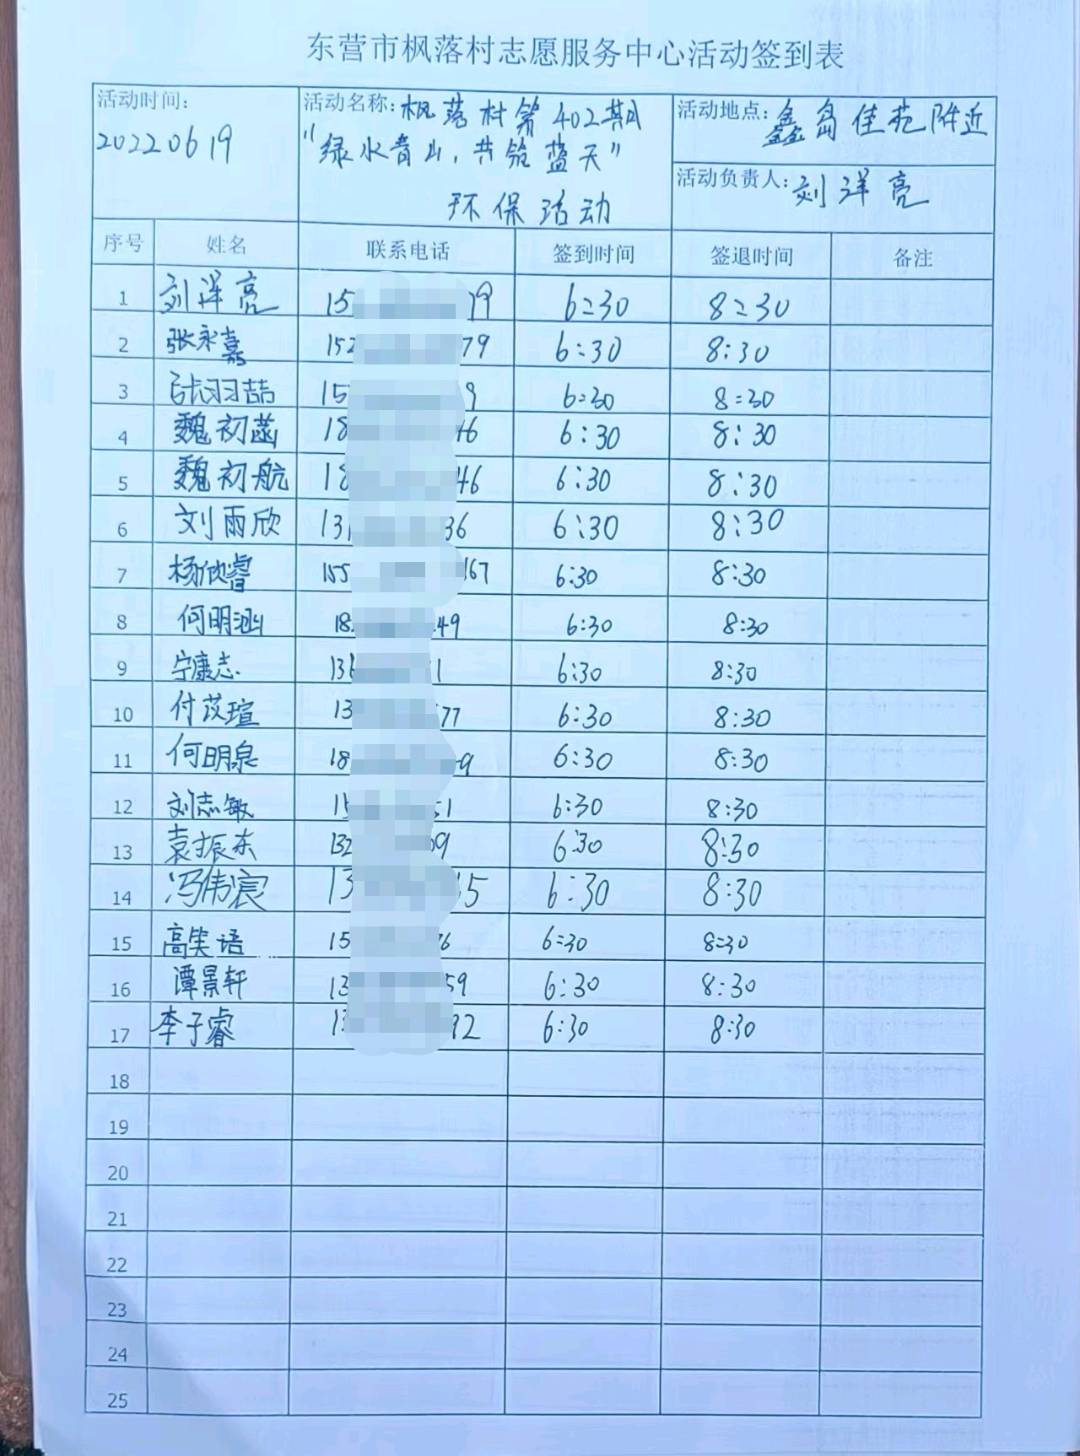 东营市枫落村志愿服务中心活动签到表
活动时间: 20220619
活动名称: 枫落村第402期
"绿水青山,共绘蓝天"
环保活动
活动地点: 鑫岛佳苑附近
活动负责人: 刘洋亮
序号 姓名 联系电话 签到时间 签退时间 备注
1 刘洋亮 15 79 6:30 8:30
2 张永嘉 152 79 6:30 8:30
3 张羽喆 15 9 6:30 8:30
4 魏初菡 18 46 6:30 8:30
5 魏初航 18 46 6:30 8:30
6 刘雨欣 131 36 6:30 8:30
7 杨欣睿 155 167 6:30 8:30
8 何明涵 18 49 6:30 8:30
9 宁康志 136 1 6:30 8:30
10 付苡瑄 13 77 6:30 8:30
11 何明泉 18 9 6:30 8:30
12 刘志敏 15 51 6:30 8:30
13 袁振东 132 09 6:30 8:30
14 冯伟宸 13 35 6:30 8:30
15 高笑语 15 76 6:30 8:30
16 谭景轩 13 59 6:30 8:30
17 李子睿 13 92 6:30 8:30
18
19
20
21
22
23
24
25